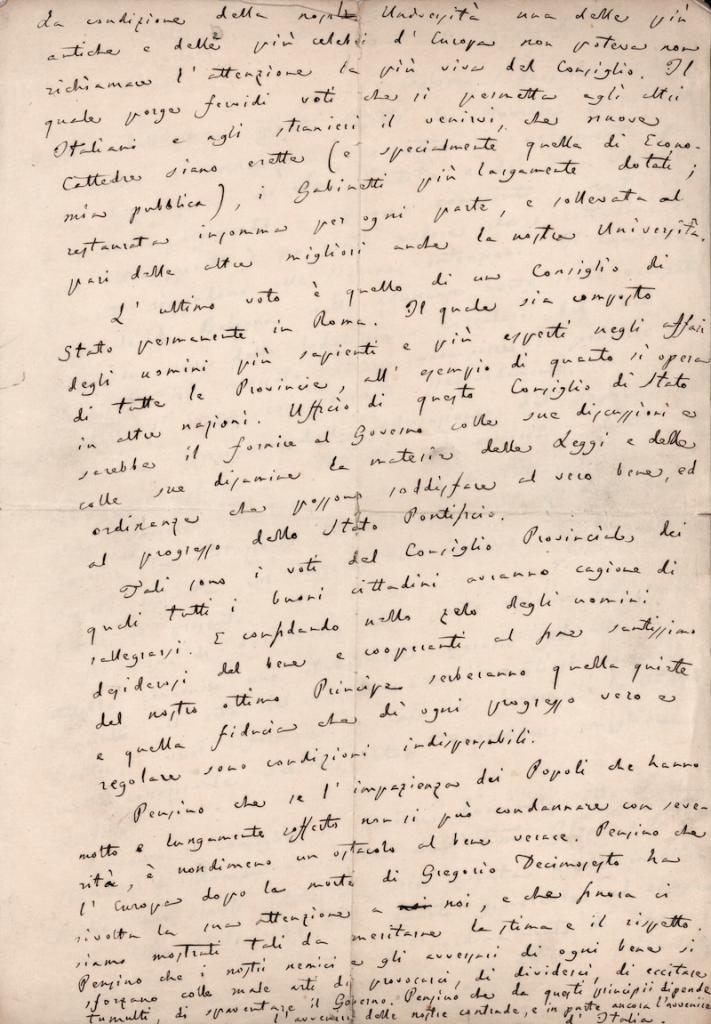 La condizione della nostra Università una delle più
antiche e delle più celebri d'Europa non poteva non
richiamare l'attenzione la più viva del Consiglio. Il
quale porge fervidi voti che si permetta agli altri
Italiani e agli stranieri il venirvi, che nuove
Cattedre siano erette (e specialmente quella di Econo-
mia pubblica), i Gabinetti più largamente dotati;
restaurata insomma per ogni parte, e sollevata al
pari delle altre migliori anche la nostra Università.
L'ultimo voto è quello di un Consiglio di
Stato permanente in Roma. Il quale sia composto
degli uomini più sapienti e più esperti negli affari
di tutte le Provincie, all'esempio di quanto si opera
in altre nazioni. Ufficio di questo Consiglio di Stato
sarebbe il fornire al Governo colle sue discussioni e
colle sue disamine la materia delle Leggi e delle
ordinanze che possono soddisfare al vero bene, ed
al progresso dello Stato Pontificio.
Tali sono i voti del Consiglio Provinciale, dei
quali tutti i buoni cittadini avranno cagione di
rallegrarsi. E confidando nello zelo degli uomini
desiderosi del bene e cooperanti al fine santissimo
del nostro ottimo Principe serberanno quella quiete
e quella fiducia che di ogni progresso vero e
regolare sono condizioni indispensabili.
Pensino che se l'impazienza dei Popoli che hanno
molto e lungamente sofferto non si può condannare con seve-
rità, è nondimeno un ostacolo al bene verace. Pensino che
l'Europa dopo la morte di Gregorio Decimosesto ha
rivolta la sua attenzione a noi, e che finora ci
siamo mostrati tali da meritarne la stima e il rispetto.
Pensino che i nostri nemici e gli avversari di ogni bene si
sforzano colle male arti di provocarci, di dividerci, di eccitare
tumulti, di spaventare il Governo. Pensino che da questi principii dipende
l'avvenire delle nostre contrade, e in parte ancora l'avvenire
d'Italia.